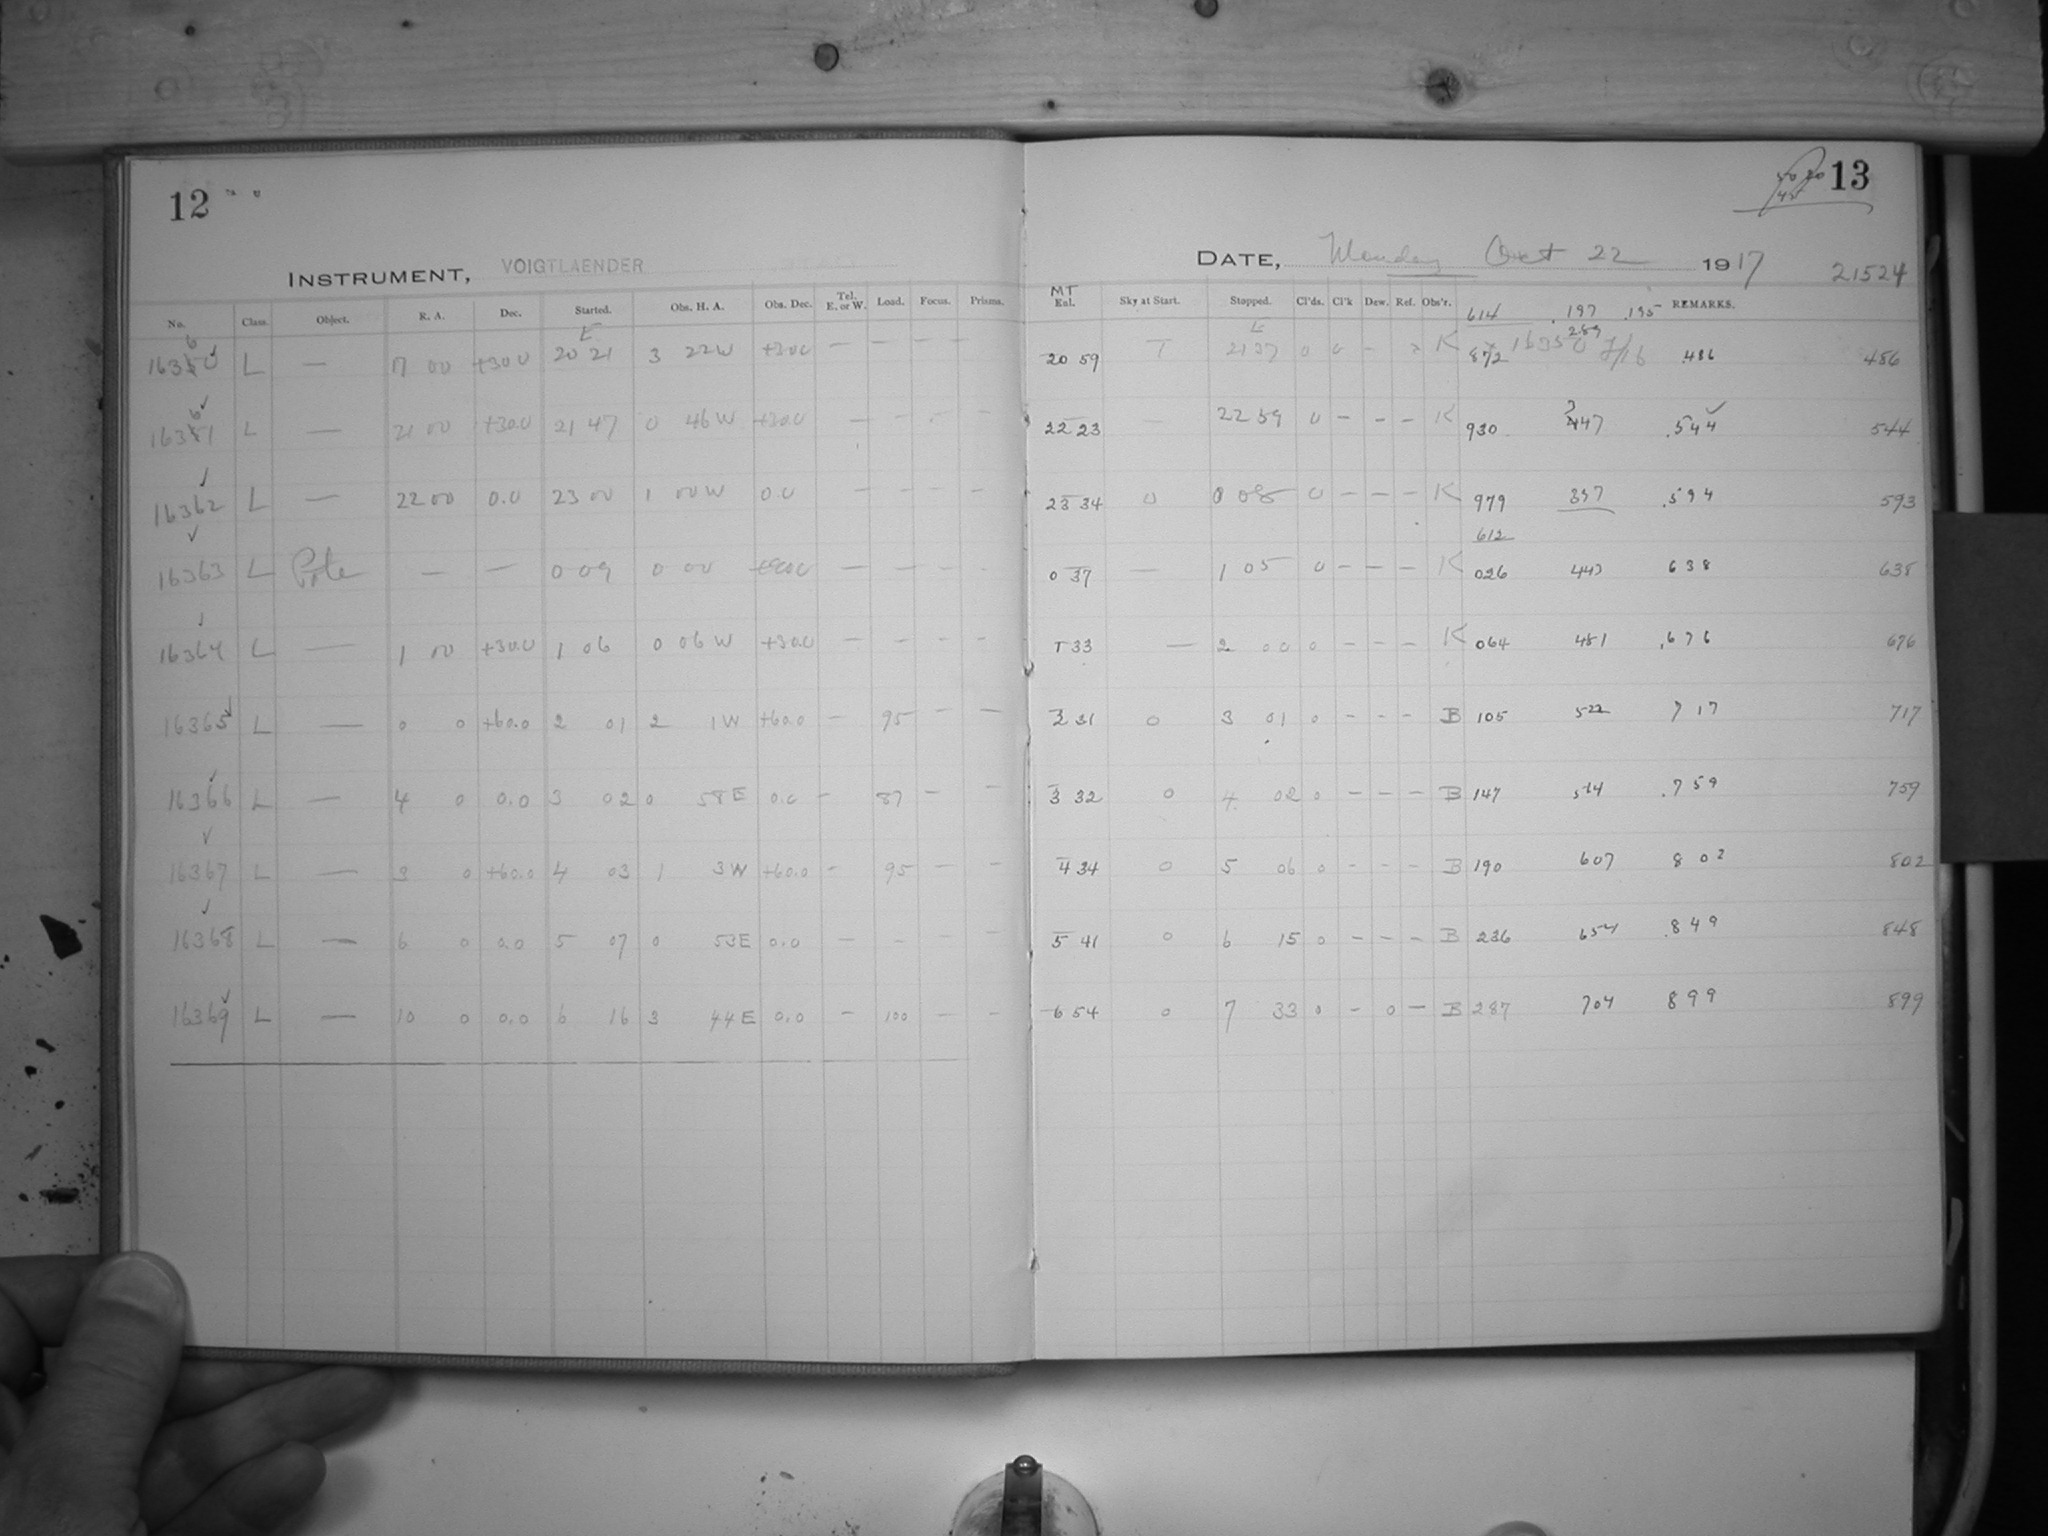 12
INSTRUMENT, VOIGTLAENDER
No. Class. Object. R. A. Dec. Started. Obs. H. A. Obs. Dec. Tel. E. or W. Load. Focus. Prisms.
16360 L — 17 00 +30.0 20 21 3 22W +30.0 — — — —
16361 L — 21 00 +30.0 21 47 0 46W +30.0 — — - -
16362 L — 22 00 0.0 23 00 1 00W 0.0 - - - -
16363 L Pole — — 0 09 0 00 +90.0 — — — -
16364 L — 1 00 +30.0 1 06 0 06W +30.0 — - - -
16365 L — 0 0 +60.0 2 01 2 1W +60.0 - 95 - —
16366 L — 4 0 0.0 3 02 0 58E 0.0 - 87 - -
16367 L — 3 0 +60.0 4 03 1 3W +60.0 - 95 - -
16368 L — 6 0 0.0 5 07 0 53E 0.0 - - - -
16369 L — 10 0 0.0 6 16 3 44E 0.0 - 100 - -
13
DATE, Monday Oct 22 1917 21524
MT
Enl. Sky at Start. Stopped. Cl'ds. Cl'k Dew. Ref. Obs'r. 614 .197 .195 REMARKS.
20 59 T 21 37 0 0 - K 872 289 .486 486
22 23 — 22 59 0 - - - K 930 347 .544 544
23 34 0 0 08 0 - - - K 979 397 .594 593
612
0 37 — 1 05 0 - - - K 026 443 638 638
1 33 — 2 00 0 - - - K 064 481 .676 676
2 31 0 3 01 0 - - - B 105 522 717 717
3 32 0 4 02 0 - - - B 147 564 .759 759
4 34 0 5 06 0 - - - B 190 607 802 802
5 41 0 6 15 0 - - - B 236 654 .849 848
6 54 0 7 33 0 - 0 - B 287 704 899 899